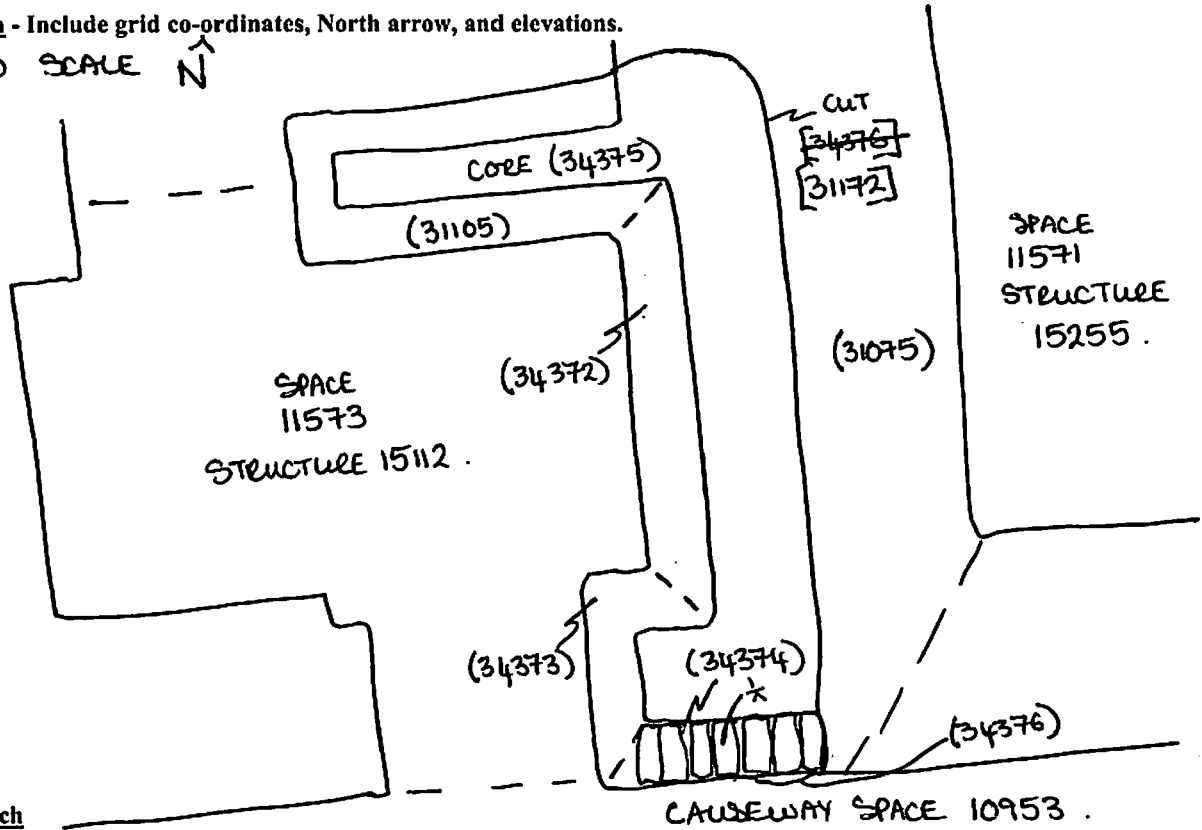 - Include grid co-ordinates, North arrow, and elevations.
SCALE N
CUT
[34376]
[31172]
CORE (34375)
(31105)
SPACE
11571
STRUCTURE
15255 .
(34372)
(31075)
SPACE
11573
STRUCTURE 15112 .
(34373)
(34374)
(34376)
CAUSEWAY SPACE 10953 .